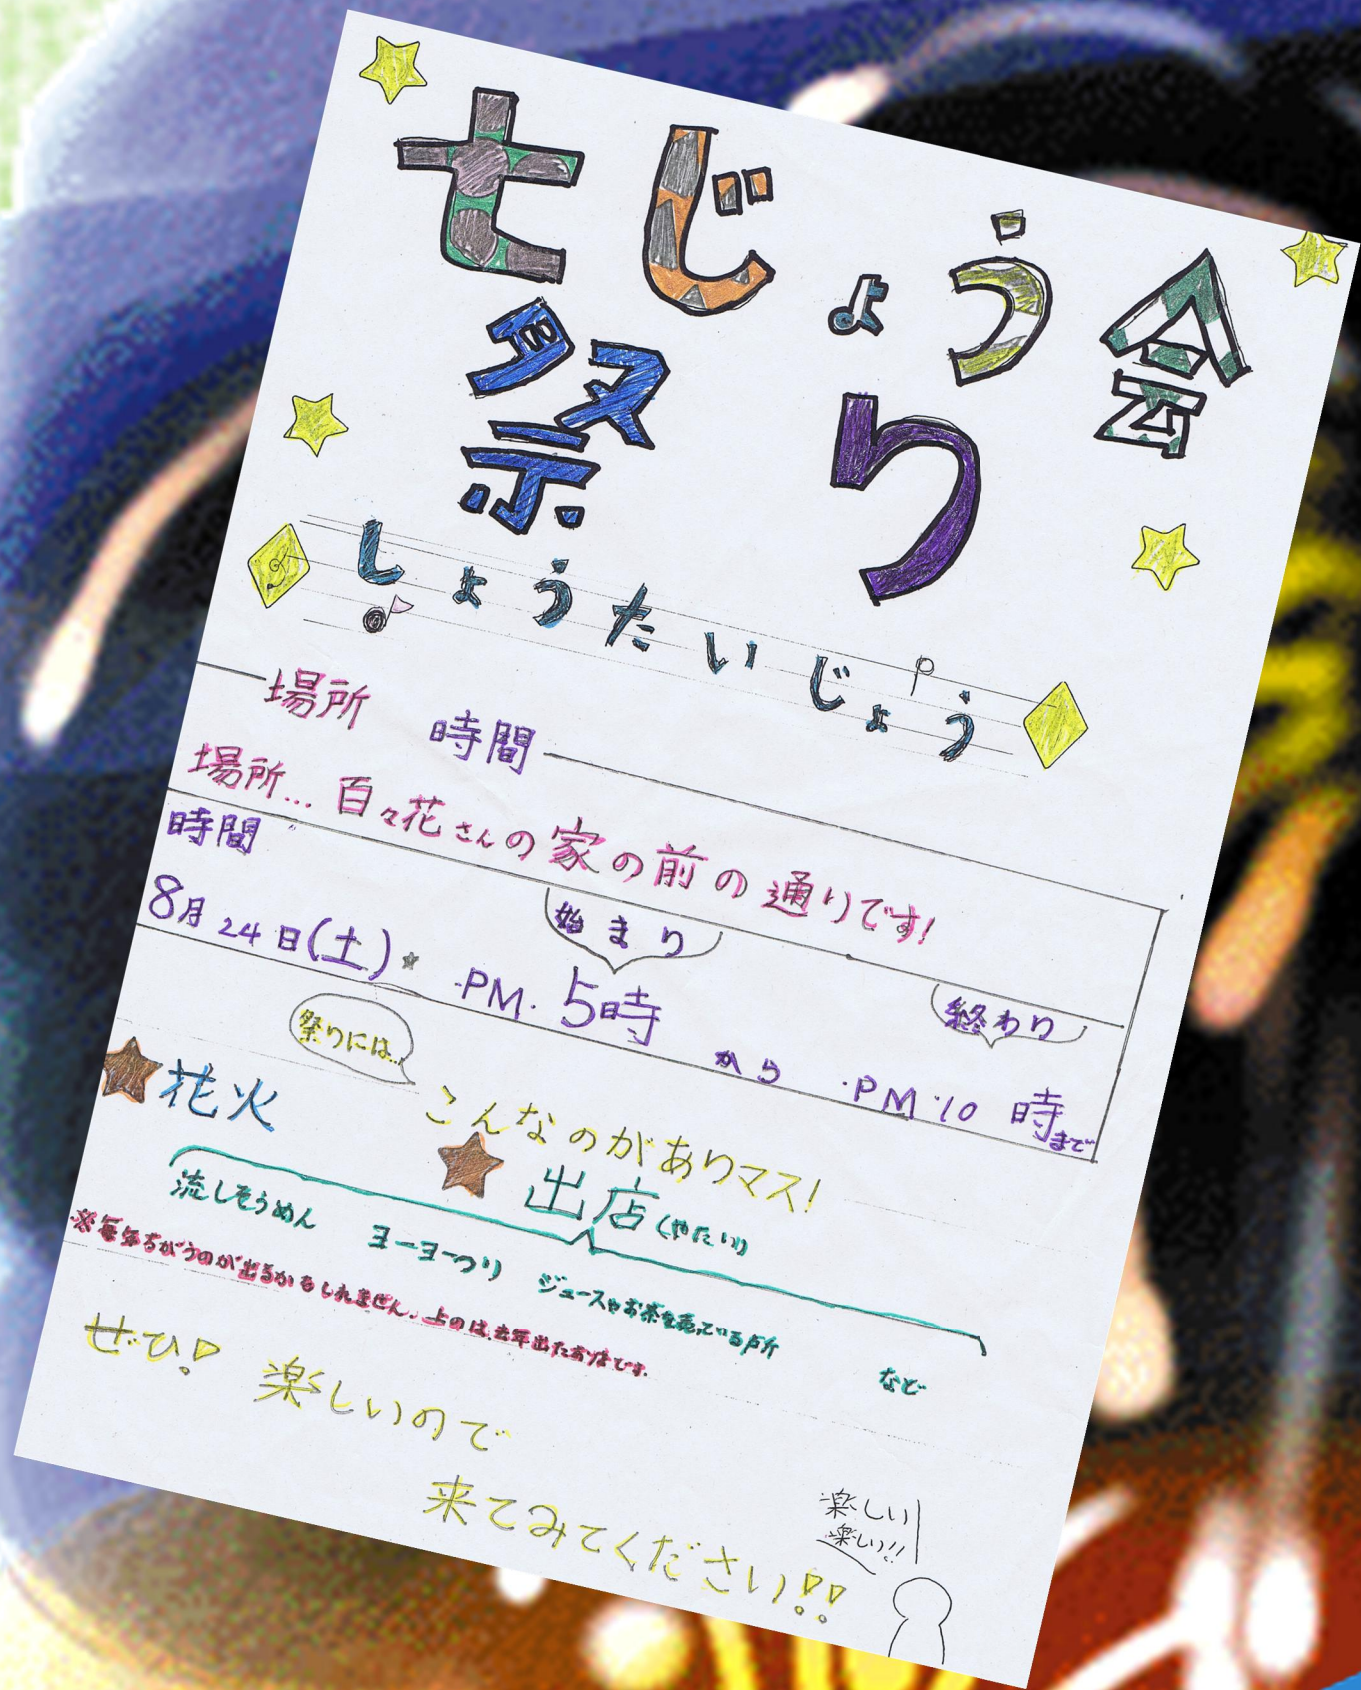 七じょう会
祭り
しょうたいじょう
場所 時間
場所…百々花さんの家の前の通りです!
時間
始まり
終わり
8月24日(土) PM.5時から ・PM・10時まで
祭りには…
こんなのがありマス!
花火
出店(やたい)
流しそうめん ヨーヨーつり ジュースやお茶を売っている所 など
※毎年ちがうのが出るかもしれません。上のは、去年出たお店です。
ぜひ! 楽しいので
来てみてください!!
楽しい
楽しい!!